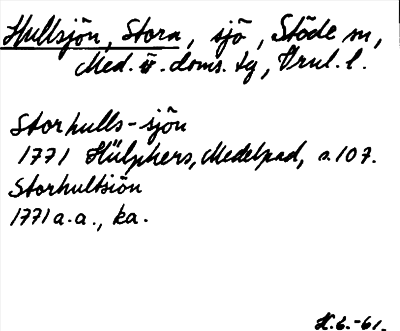 Hullsjön, Stora, sjö, Stöde sn,
Med. v. doms. tg, Vrnl. l.
Storhulls-sjön
1771 Hülphers, Medelpad, s. 107.
Storhultsiön
1771 a.a., ka.
H.G.-61.